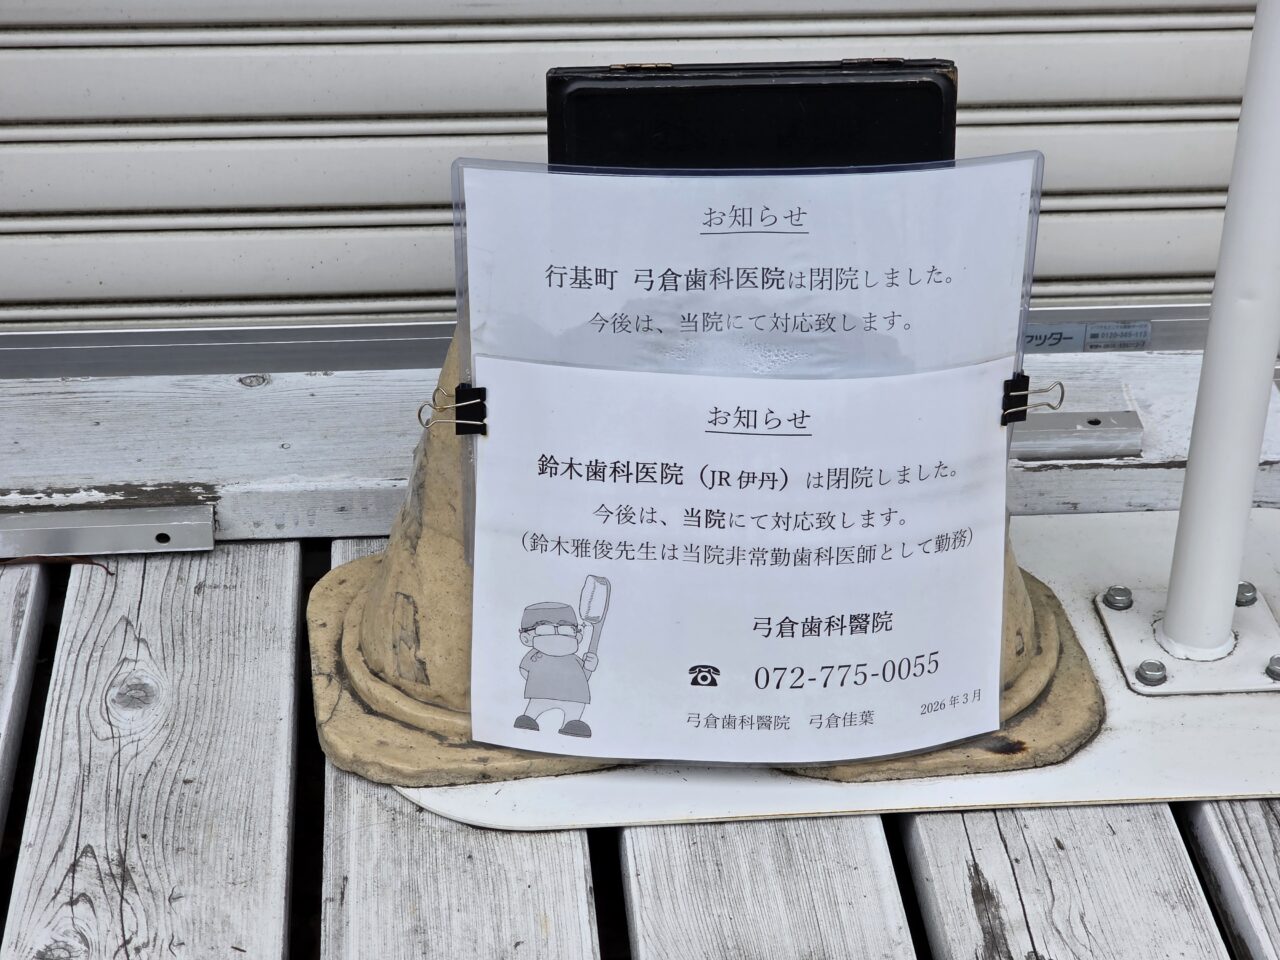 お知らせ
行基町 弓倉歯科医院は閉院しました。
今後は、当院にて対応致します。
お知らせ
鈴木歯科医院（JR伊丹）は閉院しました。
今後は、当院にて対応致します。
（鈴木雅俊先生は当院非常勤歯科医師として勤務）
弓倉歯科醫院
☎ 072-775-0055
弓倉歯科醫院 弓倉佳葉
2026年3月
ッター